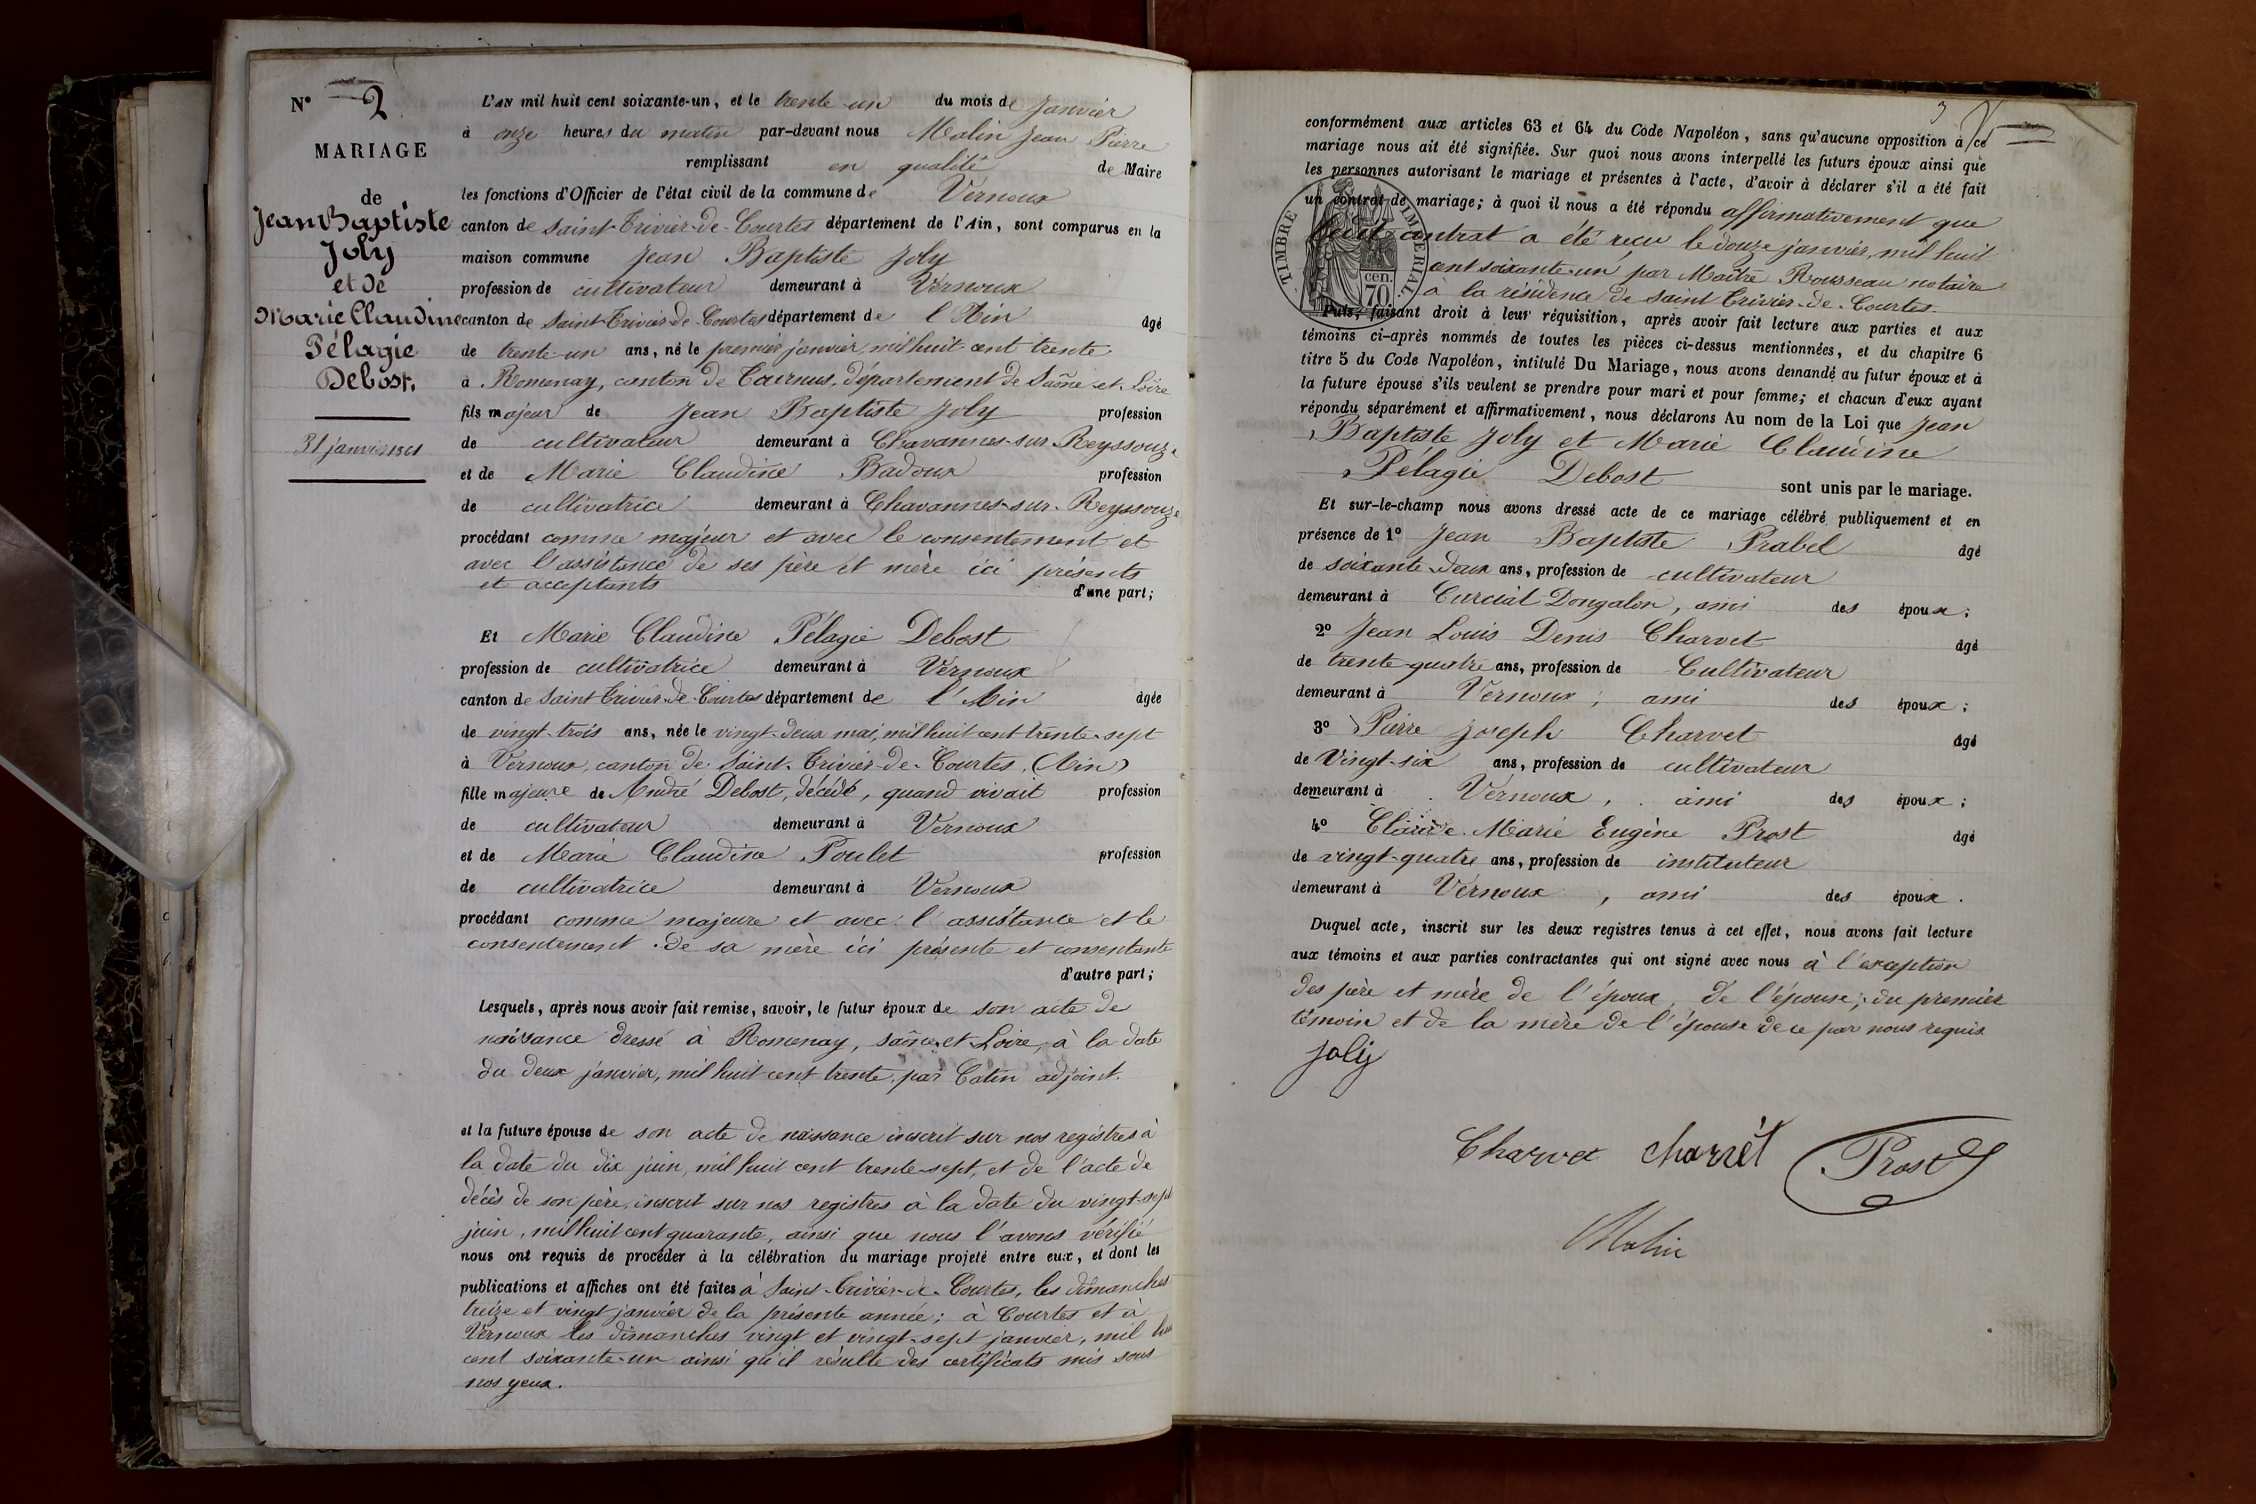 N° 2
MARIAGE
de
Jean Baptiste
Joly
et de
Marie Claudine
Pélagie
Debost.
31 janvier 1861
L'AN mil huit cent soixante-un, et le trente-un du mois de janvier
à onze heures du matin par-devant nous Malin Jean Pierre
remplissant en qualité de Maire
les fonctions d'Officier de l'état civil de la commune de Vernoux
canton de Saint-Trivier-de-Courtes département de l'Ain, sont comparus en la
maison commune Jean Baptiste Joly
profession de cultivateur demeurant à Vernoux
canton de Saint-Trivier-de-Courtes département de l'Ain âgé
de trente-un ans, né le premier janvier, mil huit cent trente
à Romenay, canton de Tournus, département de Saône-et-Loire
fils majeur de Jean Baptiste Joly profession
de cultivateur demeurant à Chavannes-sur-Reyssouze
et de Marie Claudine Badoux profession
de cultivatrice demeurant à Chavannes-sur-Reyssouze
procédant comme majeur et avec le consentement et
avec l'assistance de ses père et mère ici présents
et acceptants d'une part;
Et Marie Claudine Pélagie Debost
profession de cultivatrice demeurant à Vernoux
canton de Saint-Trivier-de-Courtes département de l'Ain âgée
de vingt-trois ans, née le vingt-deux mai, mil huit cent trente-sept
à Vernoux, canton de Saint-Trivier-de-Courtes, (Ain)
fille majeure de André Debost, décédé, quand vivait profession
de cultivateur demeurant à Vernoux
et de Marie Claudine Poulet profession
de cultivatrice demeurant à Vernoux
procédant comme majeure et avec l'assistance et le
consentement de sa mère ici présente et consentante
d'autre part;
Lesquels, après nous avoir fait remise, savoir, le futur époux de son acte de
naissance dressé à Romenay, Saône-et-Loire, à la date
du deux janvier, mil huit cent trente, par Catin adjoint.
et la future épouse de son acte de naissance inscrit sur nos registres à
la date du dix juin, mil huit cent trente-sept, et de l'acte de
décès de son père, inscrit sur nos registres à la date du vingt-sept
juin, mil huit cent quarante, ainsi que nous l'avons vérifié
nous ont requis de procéder à la célébration du mariage projeté entre eux, et dont les
publications et affiches ont été faites à Saint-Trivier-de-Courtes, les dimanches
treize et vingt janvier de la présente année; à Courtes et à
Vernoux les dimanches vingt et vingt-sept janvier, mil huit
cent soixante-un ainsi qu'il résulte des certificats mis sous
nos yeux.
3
conformément aux articles 63 et 64 du Code Napoléon, sans qu'aucune opposition à ce
mariage nous ait été signifiée. Sur quoi nous avons interpellé les futurs époux ainsi que
les personnes autorisant le mariage et présentes à l'acte, d'avoir à déclarer s'il a été fait
un contrat de mariage; à quoi il nous a été répondu affirmativement que
ledit contrat a été reçu le douze janvier, mil huit
cent soixante-un, par Maître Rousseau notaire
à la résidence de Saint-Trivier-de-Courtes.
TIMBRE IMPERIAL
cen.
70
Puis, faisant droit à leur réquisition, après avoir fait lecture aux parties et aux
témoins ci-après nommés de toutes les pièces ci-dessus mentionnées, et du chapitre 6
titre 5 du Code Napoléon, intitulé Du Mariage, nous avons demandé au futur époux et à
la future épouse s'ils veulent se prendre pour mari et pour femme; et chacun d'eux ayant
répondu séparément et affirmativement, nous déclarons Au nom de la Loi que Jean
Baptiste Joly et Marie Claudine
Pélagie Debost sont unis par le mariage.
Et sur-le-champ nous avons dressé acte de ce mariage célébré publiquement et en
présence de 1° Jean Baptiste Prabel âgé
de soixante-deux ans, profession de cultivateur
demeurant à Curciat Dongalon, ami des époux;
2° Jean Louis Denis Charvet âgé
de trente-quatre ans, profession de Cultivateur
demeurant à Vernoux, ami des époux;
3° Pierre Joseph Charvet âgé
de Vingt-six ans, profession de cultivateur
demeurant à Vernoux, ami des époux;
4° Claude Marie Eugène Prost âgé
de vingt-quatre ans, profession de instituteur
demeurant à Vernoux, ami des époux.
Duquel acte, inscrit sur les deux registres tenus à cet effet, nous avons fait lecture
aux témoins et aux parties contractantes qui ont signé avec nous à l'exception
des père et mère de l'époux, de l'épouse; du premier
témoin et de la mère de l'épouse de ce par nous requis
Joly
Charvet charvet Prost
Malin